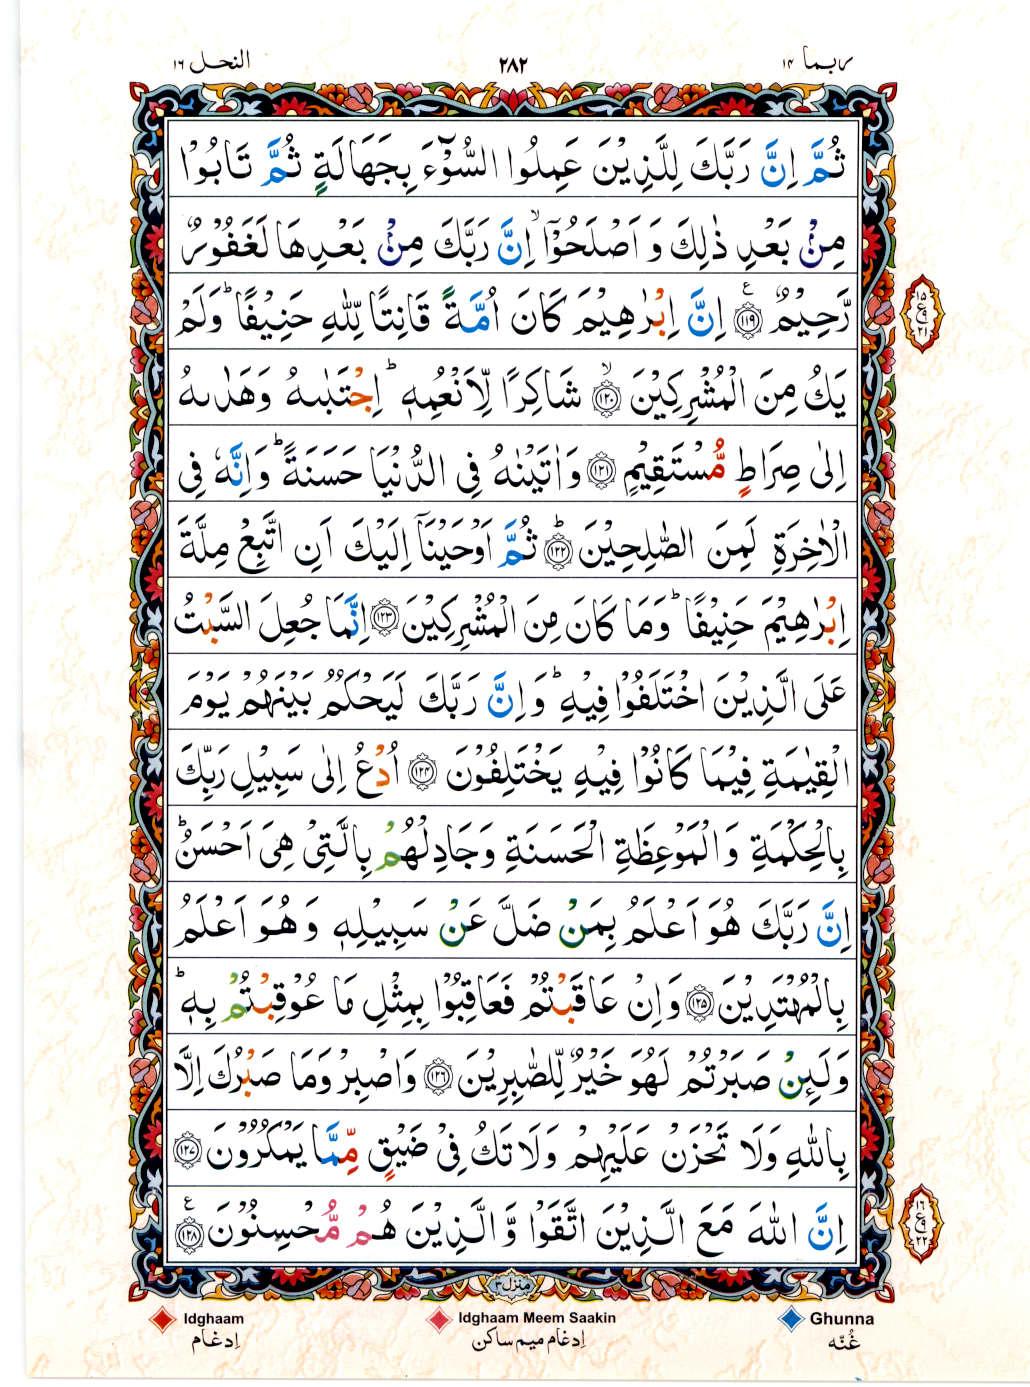 ربما ١٤
٢٨٢
النحل ١٦
ثُمَّ اِنَّ رَبَّكَ لِلَّذِيْنَ عَمِلُوا السُّوْٓءَ بِجَهَالَةٍ ثُمَّ تَابُوْا
مِنْۢ بَعْدِ ذٰلِكَ وَ اَصْلَحُوْٓا ۙ اِنَّ رَبَّكَ مِنْۢ بَعْدِهَا لَغَفُوْرٌ
رَّحِيْمٌ ﴿١١٩﴾ اِنَّ اِبْرٰهِيْمَ كَانَ اُمَّةً قَانِتًا لِّلّٰهِ حَنِيْفًا ؕ وَلَمْ
يَكُ مِنَ الْمُشْرِكِيْنَ ۙ ﴿١٢٠﴾ شَاكِرًا لِّاَنْعُمِهٖ ؕ اِجْتَبٰىهُ وَهَدٰىهُ
اِلٰى صِرَاطٍ مُّسْتَقِيْمٍ ﴿١٢١﴾ وَاٰتَيْنٰهُ فِى الدُّنْيَا حَسَنَةً ؕ وَاِنَّهٗ فِى
الْاٰخِرَةِ لَمِنَ الصّٰلِحِيْنَ ؕ ﴿١٢٢﴾ ثُمَّ اَوْحَيْنَآ اِلَيْكَ اَنِ اتَّبِعْ مِلَّةَ
اِبْرٰهِيْمَ حَنِيْفًا ؕ وَمَا كَانَ مِنَ الْمُشْرِكِيْنَ ﴿١٢٣﴾ اِنَّمَا جُعِلَ السَّبْتُ
عَلَى الَّذِيْنَ اخْتَلَفُوْا فِيْهِ ؕ وَاِنَّ رَبَّكَ لَيَحْكُمُ بَيْنَهُمْ يَوْمَ
الْقِيٰمَةِ فِيْمَا كَانُوْا فِيْهِ يَخْتَلِفُوْنَ ﴿١٢٤﴾ اُدْعُ اِلٰى سَبِيْلِ رَبِّكَ
بِالْحِكْمَةِ وَالْمَوْعِظَةِ الْحَسَنَةِ وَجَادِلْهُمْ بِالَّتِىْ هِىَ اَحْسَنُ ؕ
اِنَّ رَبَّكَ هُوَ اَعْلَمُ بِمَنْ ضَلَّ عَنْ سَبِيْلِهٖ وَهُوَ اَعْلَمُ
بِالْمُهْتَدِيْنَ ﴿١٢٥﴾ وَاِنْ عَاقَبْتُمْ فَعَاقِبُوْا بِمِثْلِ مَا عُوْقِبْتُمْ بِهٖ ؕ
وَلَىِٕنْ صَبَرْتُمْ لَهُوَ خَيْرٌ لِّلصّٰبِرِيْنَ ﴿١٢٦﴾ وَاصْبِرْ وَمَا صَبْرُكَ اِلَّا
بِاللّٰهِ وَلَا تَحْزَنْ عَلَيْهِمْ وَلَا تَكُ فِىْ ضَيْقٍ مِّمَّا يَمْكُرُوْنَ ﴿١٢٧﴾
اِنَّ اللّٰهَ مَعَ الَّذِيْنَ اتَّقَوْا وَّالَّذِيْنَ هُمْ مُّحْسِنُوْنَ ﴿١٢٨﴾ ع
١٥ ع ٢١
١٦ ع ٢٢
منزل ٣
Ghunna
غُنّه
Idghaam Meem Saakin
اِدغام میم ساکن
Idghaam
اِدغام